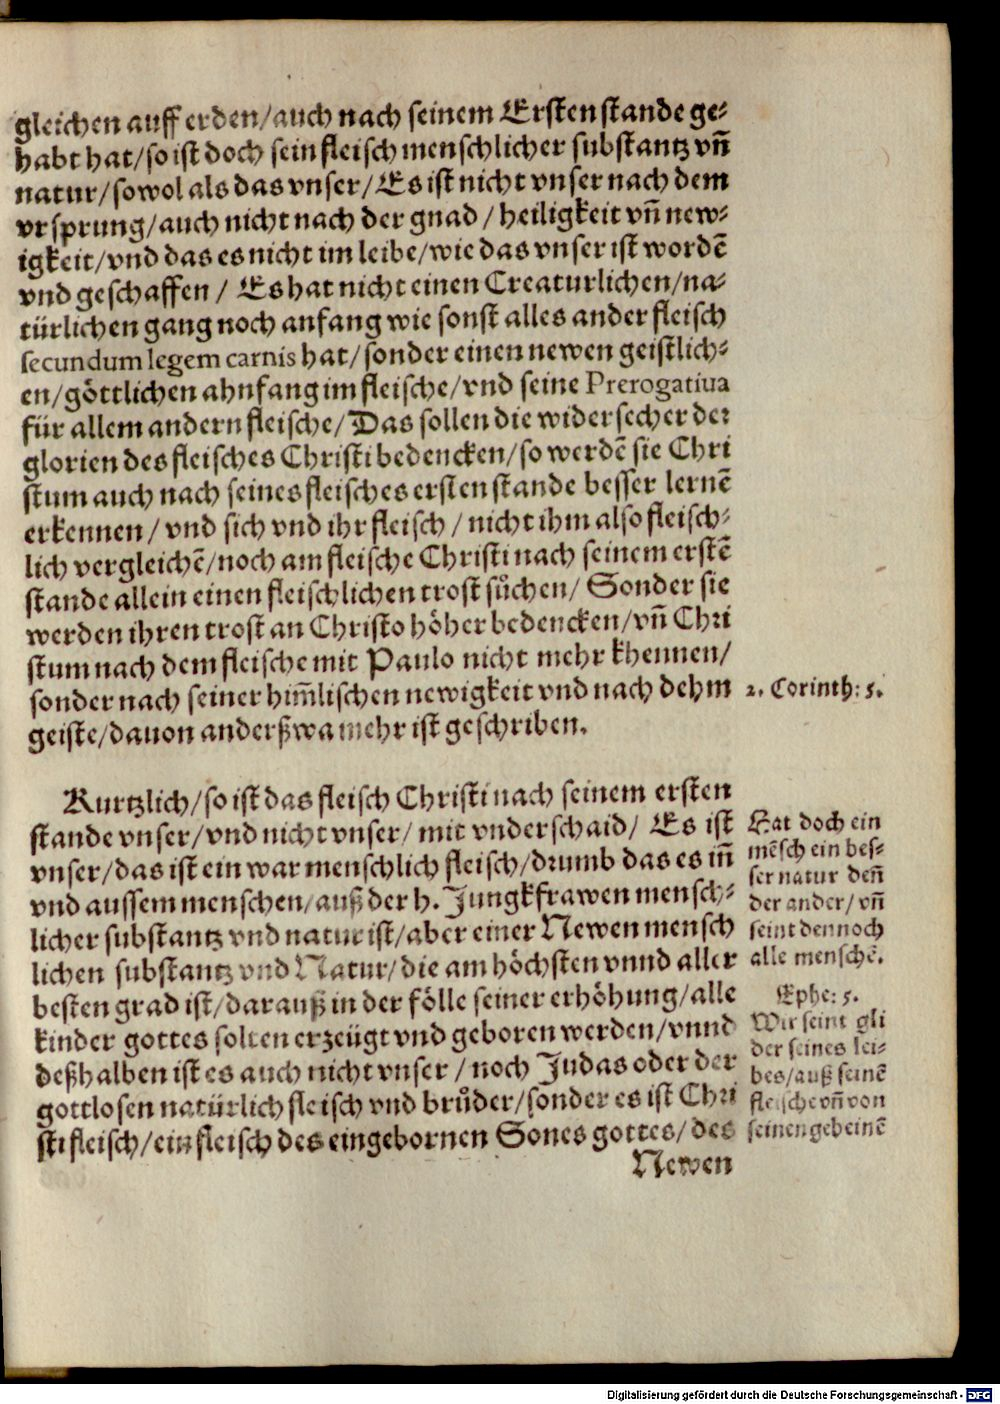 gleichen auff erden/auch nach seinem Ersten stande ge⸗
habt hat/so ist doch sein fleisch menschlicher substantz vñ
natur/sowol als das vnser/Es ist nicht vnser nach dem
vrsprung/auch nicht nach der gnad/heiligkeit vñ new⸗
igkeit/vnd das es nicht im leibe/wie das vnser ist wordẽ
vnd geschaffen/ Es hat nicht einen Creaturlichen/na⸗
türlichen gang noch anfang wie sonst alles ander fleisch
secundum legem carnis hat/sonder einen newen geistlich⸗
en/göttlichen ahnfang im fleische/vnd seine Prerogatiua
für allem andern fleische/Das sollen die widersecher der
glorien des fleisches Christi bedencken/so werdẽ sie Chri
stum auch nach seines fleisches ersten stande besser lernẽ
erkennen/vnd sich vnd ihr fleisch/nicht ihm also fleisch⸗
lich vergleichẽ/noch am fleische Christi nach seinem erstẽ
stande allein einen fleischlichen trost sůchen/ Sonder sie
werden ihren trost an Christo höher bedencken/vñ Chri
stum nach dem fleische mit Paulo nicht mehr khennen/
sonder nach seiner him̃lischen newigkeit vnd nach dehm
2. Corinth: 5.
geiste/dauon anderßwa mehr ist geschriben.
Kurtzlich/so ist das fleisch Christi nach seinem ersten
stande vnser/vnd nicht vnser/mit vnderschaid/ Es ist
vnser/das ist ein war menschlich fleisch/drumb das es iñ
vnd aussem menschen/auß der h. Jungkfrawen mensch⸗
licher substantz vnd natur ist/aber einer Newen mensch
lichen substantz vnd Natur/die am höchsten vnnd aller
besten grad ist/darauß in der fölle seiner erhöhung/alle
kinder gottes solten erzeügt vnd geboren werden/vnnd
deßhalben ist es auch nicht vnser/noch Judas oder der
gottlosen natürlich fleisch vnd brůder/sonder es ist Chri
sti fleisch/ein fleisch des eingebornen Sones gottes/des
Newen
Hat doch ein
mẽsch ein bes⸗
ser natur deñ
der ander/vñ
seint dennoch
alle menschẽ.
Ephe: 5.
Wir seint gli
der seines lei⸗
bes/auß seinẽ
fleische vñ von
seinen gebeinẽ
Digitalisierung gefördert durch die Deutsche Forschungsgemeinschaft - DFG